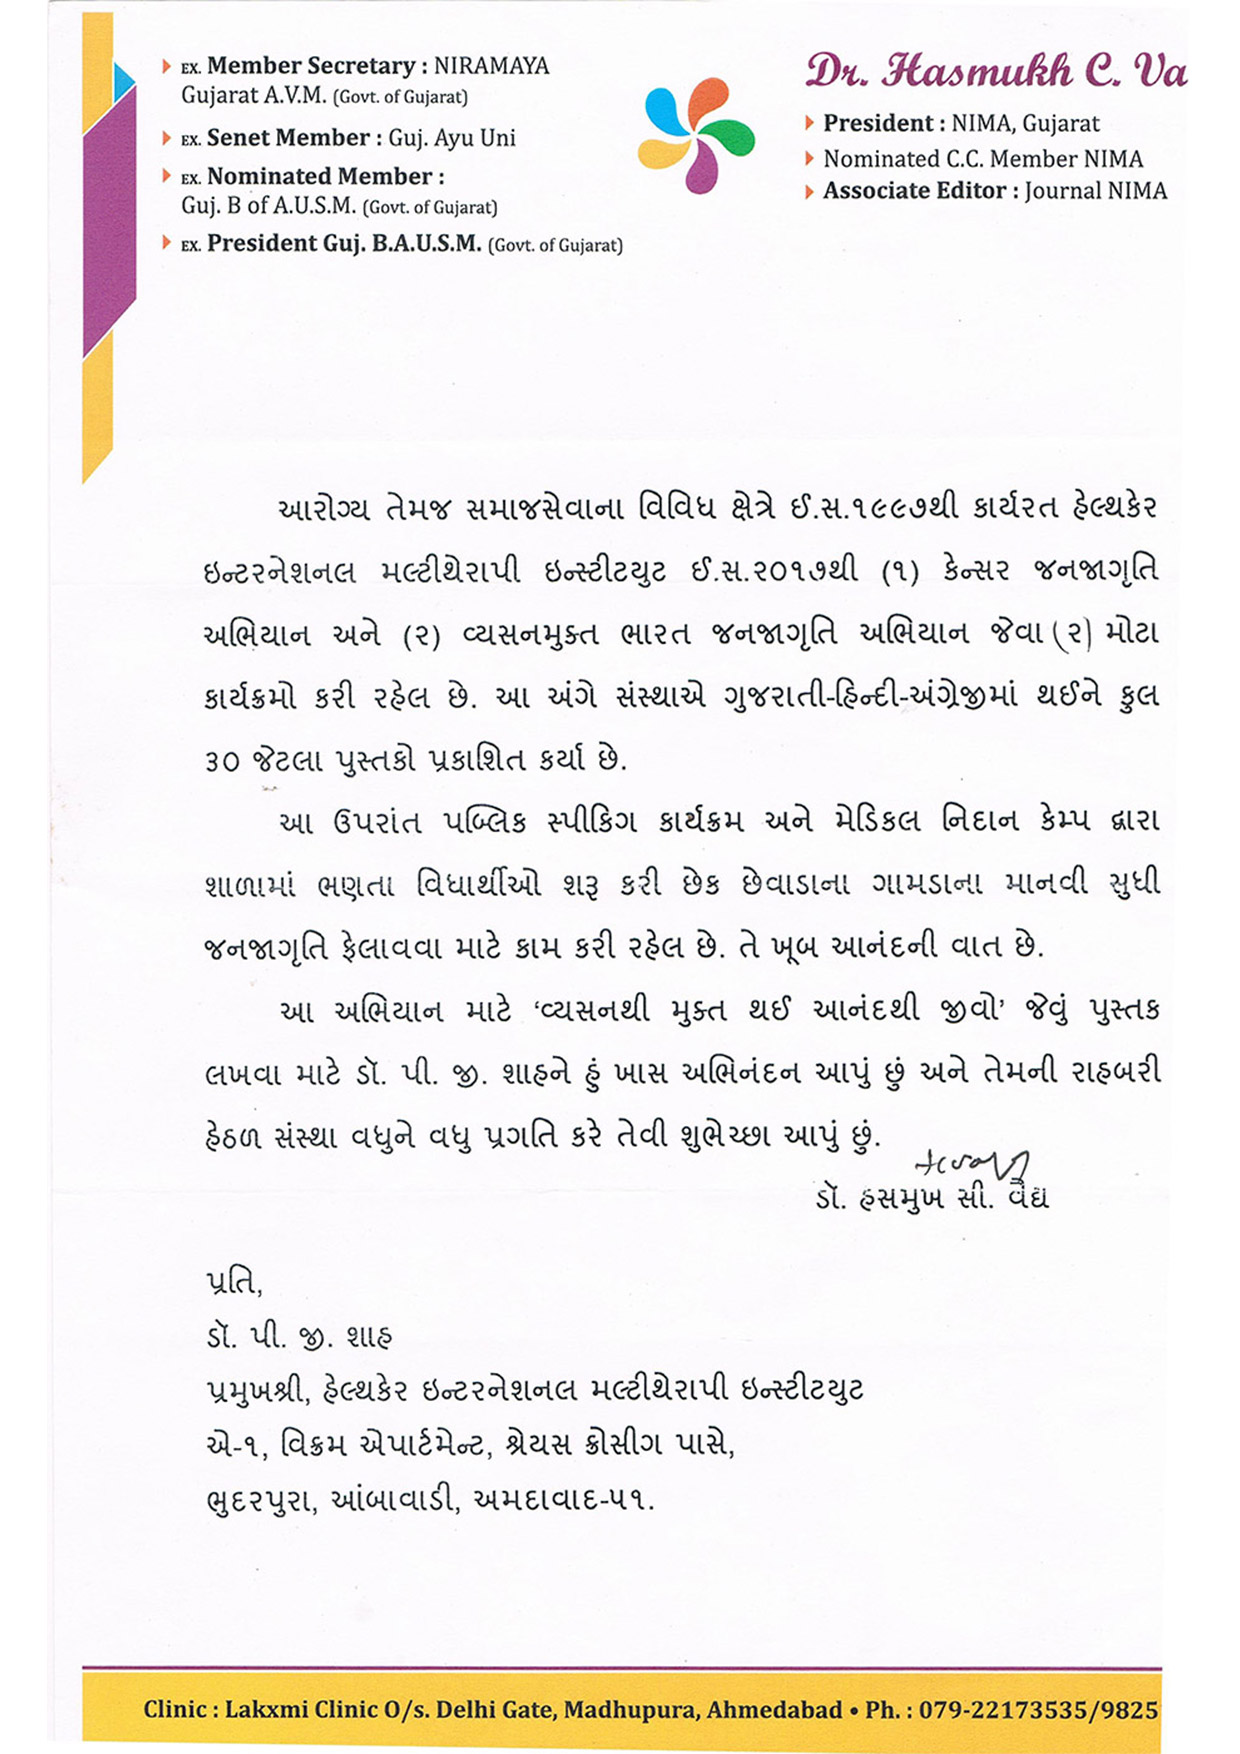 EX. Member Secretary : NIRAMAYA
Gujarat A.V.M. (Govt. of Gujarat)
EX. Senet Member : Guj. Ayu Uni
EX. Nominated Member :
Guj. B of A.U.S.M. (Govt. of Gujarat)
EX. President Guj. B.A.U.S.M. (Govt. of Gujarat)
Dr. Hasmukh C. Va
President : NIMA, Gujarat
Nominated C.C. Member NIMA
Associate Editor : Journal NIMA
આરોગ્ય તેમજ સમાજસેવાના વિવિધ ક્ષેત્રે ઈ.સ.૧૯૯૭થી કાર્યરત હેલ્થકેર
ઇન્ટરનેશનલ મલ્ટીથેરાપી ઇન્સ્ટીટયુટ ઈ.સ.૨૦૧૭થી (૧) કેન્સર જનજાગૃતિ
અભિયાન અને (૨) વ્યસનમુક્ત ભારત જનજાગૃતિ અભિયાન જેવા (૨) મોટા
કાર્યક્રમો કરી રહેલ છે. આ અંગે સંસ્થાએ ગુજરાતી-હિન્દી-અંગ્રેજીમાં થઈને કુલ
૩૦ જેટલા પુસ્તકો પ્રકાશિત કર્યા છે.
આ ઉપરાંત પબ્લિક સ્પીકિંગ કાર્યક્રમ અને મેડિકલ નિદાન કેમ્પ દ્વારા
શાળામાં ભણતા વિધાર્થીઓ શરૂ કરી છેક છેવાડાના ગામડાના માનવી સુધી
જનજાગૃતિ ફેલાવવા માટે કામ કરી રહેલ છે. તે ખૂબ આનંદની વાત છે.
આ અભિયાન માટે ‘વ્યસનથી મુક્ત થઈ આનંદથી જીવો’ જેવું પુસ્તક
લખવા માટે ડૉ. પી. જી. શાહને હું ખાસ અભિનંદન આપું છું અને તેમની રાહબરી
હેઠળ સંસ્થા વધુને વધુ પ્રગતિ કરે તેવી શુભેચ્છા આપું છું.
ડૉ. હસમુખ સી. વૈદ્ય
પ્રતિ,
ડૉ. પી. જી. શાહ
પ્રમુખશ્રી, હેલ્થકેર ઇન્ટરનેશનલ મલ્ટીથેરાપી ઇન્સ્ટીટયુટ
એ-૧, વિક્રમ એપાર્ટમેન્ટ, શ્રેયસ ક્રોસીગ પાસે,
ભુદરપુરા, આંબાવાડી, અમદાવાદ-૫૧.
Clinic : Lakxmi Clinic O/s. Delhi Gate, Madhupura, Ahmedabad • Ph. : 079-22173535/9825